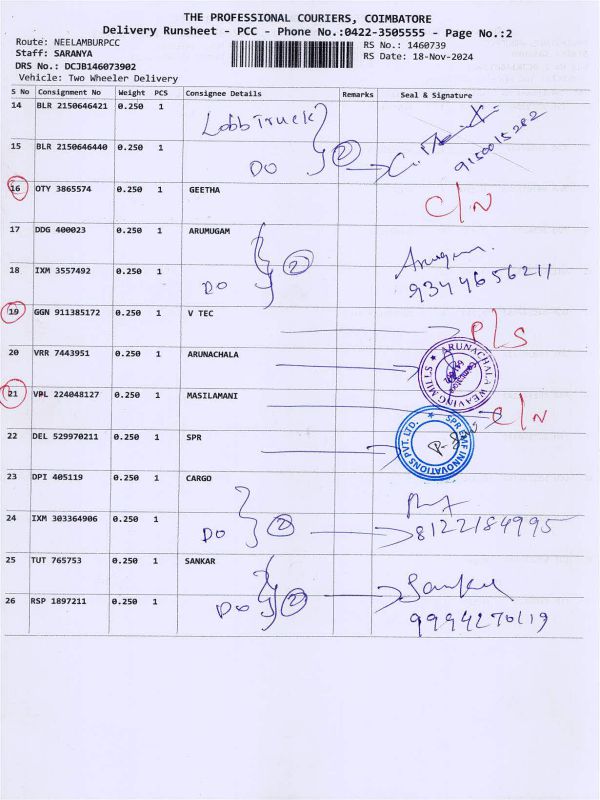 THE PROFESSIONAL COURIERS, COIMBATORE
Delivery Runsheet - PCC - Phone No.:0422-3505555 - Page No.:2
Route: NEELAMBURPCC
Staff: SARANYA
DRS No.: DCJB146073902
Vehicle: Two Wheeler Delivery
RS No.: 1460739
RS Date: 18-Nov-2024
S No Consignment No Weight PCS Consignee Details Remarks Seal & Signature
14 BLR 2150646421 0.250 1 LobbTruck
15 BLR 2150646440 0.250 1 DO 2 9150015282
16 OTY 3865574 0.250 1 GEETHA C/N
17 DDG 400023 0.250 1 ARUMUGAM 2 Arugam
18 IXM 3557492 0.250 1 DO 9344656211
19 GGN 911385172 0.250 1 V TEC P/S
20 VRR 7443951 0.250 1 ARUNACHALA ★ ARUNACHALA WEAVING MILLS
21 VPL 224048127 0.250 1 MASILAMANI C/N
22 DEL 529970211 0.250 1 SPR ★ SPR EMF INNOVATIONS PVT. LTD.
23 DPI 405119 0.250 1 CARGO
24 IXM 303364906 0.250 1 DO 2 8122184995
25 TUT 765753 0.250 1 SANKAR Sankar
26 RSP 1897211 0.250 1 DO 2 9994270119